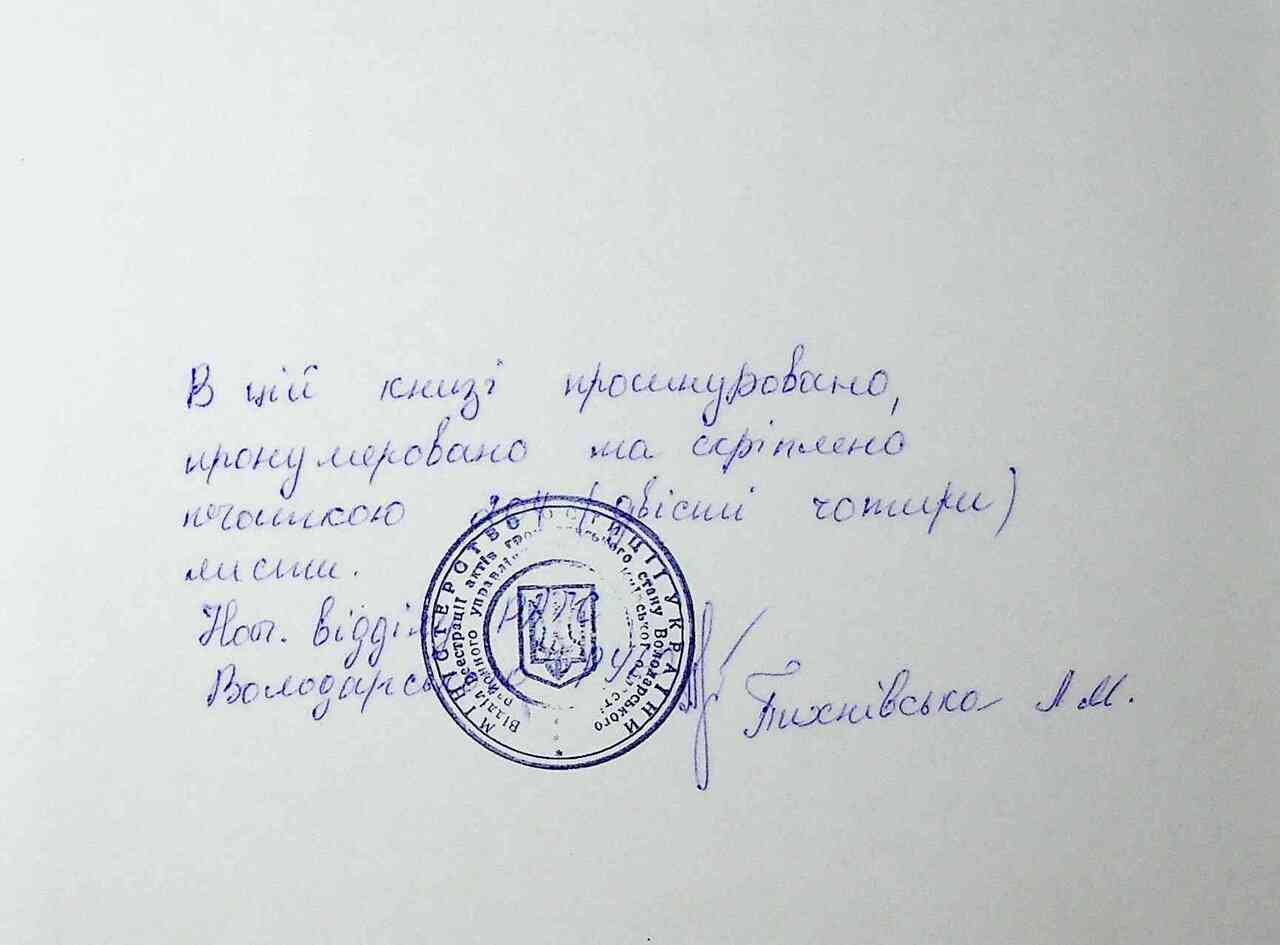 В цій книзі прошнуровано,
пронумеровано та скріплено
печаткою 204 (двісті чотири)
листи.
Нач. відділу РАЦС
Володарсь РУЮ Тихнівська Л.М.
МІНІСТЕРСТВО ЮСТИЦІЇ УКРАЇНИ
Відділ реєстрації актів громадянського стану Володарського
районного управлін